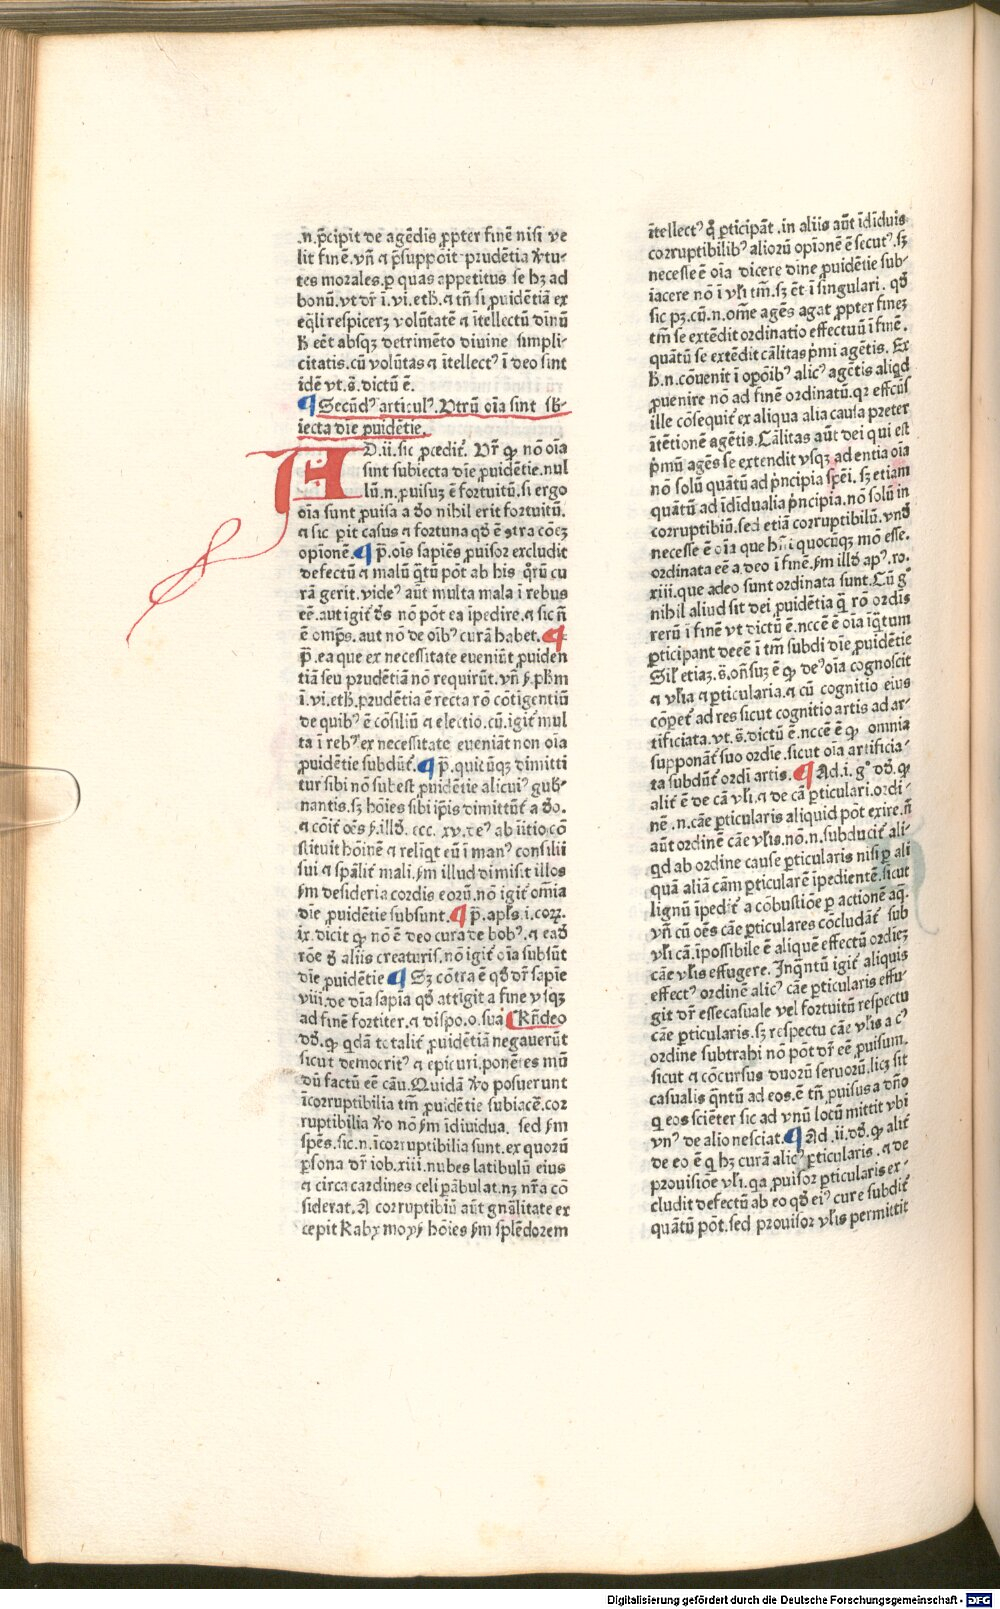 .n.p̄cipit de agēdis ꝓpter finē nisi ve
lit finē.vn̄ ⁊ p̄suppoit prudētia v̓tu-
tes morales.ꝑ quas appetitus se hꝫ ad
bonū.vt dr̄ ī.vi.eth̄.⁊ tn̄ si ꝓuidētiā ex
eq̄li respicerꝫ volūtatē ⁊ ītellectū dīnū
h̄ eēt absqꝫ detrimēto diuine simpli-
citatis.cū volūtas ⁊ ītellectꝰ ī deo sint
idē vt.s̄.dictū ē.
¶ Secūdꝰ articulꝰ.Vtrū oīa sint sb̄-
iecta dīe ꝓuidētie.
AD.ii.sic ꝓcedit᷑. Vr̄ ꝙ nō oīa
sint subiecta dīe ꝓuidētie.nul
lū.n.ꝓuisuꝫ ē fortuitū.si ergo
oīa sunt ꝓuisa a deo nihil erit fortuitū.
⁊ sic ꝑit casus ⁊ fortuna qd̄ ē ɔtra cōeꝫ
opionē. ¶ p̄.oīs sapiēs ꝓuisor excludit
defectū ⁊ malū q̄tū pōt ab his q̄rū cu
rā gerit.videꝰ aūt multa mala ī rebus
eē.aut igit᷑ de᷒ nō pōt ea īpedire.⁊ sic n̄
ē omp̄s.aut nō de oīb᷒ curā habet. ¶
p̄.ea que ex necessitate eueniūt ꝓuiden
tiā seu prudētiā nō requirūt.vn̄ ẜm ph̄m
ī.vi.eth̄.prudētia ē recta rō cōtigentiū
de quibꝰ ē cōsiliū ⁊ electio.cū.igit᷑ mul
ta ī rebꝰ ex necessitate eueniāt non oīa
ꝓuidētie subdūt᷑. ¶ p̄.quicūqꝫ dimitti
tur sibi nō subest ꝓuidētie alicuiꝰ gub̄-
nantis.sꝫ hōies sibi ip̄is dimittūt᷑ a deo.
⁊ cōit᷑ oēs ẜm illd̄.ecc.xv.deꝰ ab īitio cō
stituit hōinē ⁊ reliq̄t eū ī manꝰ consilii
sui ⁊ sp̄alit᷑ mali.ẜm illud dimisit illos
ẜm desideria cordis eorū.nō igit᷑ om̄ia
dīe ꝓuidētie subsunt. ¶ p̄.apl̄s.i.coꝝ.
ix.dicit ꝙ nō ē deo cura de bobꝰ.⁊ eadē
rōe de aliis creaturis.nō igit᷑ oīa subsūt
dīe ꝓuidētie ¶ Sꝫ cōtra ē qd̄ dr̄ sapīe
viii.de dīa sapīa qd̄ attīgit a fine vsqꝫ
ad finē fortiter.⁊ dispo.o.suā ¶ Rn̄deo
dd̄.ꝙ qdā totalit᷑ ꝓuidētiā negauerūt
sicut democritꝰ ⁊ epicuri.ponētes mū
dū factū eē cāu.Quidā vo̓ posuerunt
īcorruptibilia tm̄ ꝓuidētie subiacē.cor
ruptibilia vo̓ nō ẜm īdiuidua. sed ẜm
spēs.sic.n.īcorruptibilia sunt.ex quorū
ꝑsona dr̄ iob.xiii.nubes latibulū eius
⁊ circa cardines celi ꝑābulat.nꝫ nr̄a cō
siderat.A corruptibiliū aūt gn̄alitate ex
cepit Raby moyẜ hōies ẜm splēdorem
ītellectꝰ quē ꝑticipāt.in aliis aūt īdiduis
corruptibilibꝰ aliorū opionē ē secutꝰ.sꝫ
necesse ē oīa dicere dine ꝓuidētie sub-
iacere nō ī vl̄i tm̄.sꝫ ēt ī singulari. qd̄
sic pꝫ.cū.n.om̄e agēs agat ꝓpter fineꝫ
tm̄ se extēdit ordinatio effectuū ī finē.
quātū se extēdit cālitas p̓mi agētis. Ex
h̄.n.cōuenit ī oꝑōibꝰ alicꝰ agētis aliqd
ꝓuenire nō ad finē ordinatū.qꝛ effctūs
ille cōsequit᷑ ex aliqua alia causa preter
ītētionē agētis.Cālitas aūt dei qui est
p̓mū agēs se extendit vsqꝫ ad entia oīa
nō solū quātū ad p̓ncipia sp̄ei. sꝫ etiam
quātū ad īdidualia p̓ncipia.nō solū in
corruptibiū.sed etiā corruptibilū.vnd̄
necesse ē oīa que hn̄t quocūqꝫ mō esse.
ordinata eē a deo ī finē.ẜm illd̄ apꝰ.ro.
xiii.que adeo sunt ordinata sunt.Cū gͦ
nihil aliud sit dei ꝓuidētia q̄ rō ordis
rerū ī finē vt dictū ē.nccē ē oīa īq̄tum
ꝑticipant deeē ī tm̄ subdi dīe ꝓuidētie
Sil̄ etiaꝫ.s̄.on̄suꝫ ē ꝙ deꝰ oīa cognoscit
⁊ vl̄ia ⁊ ꝑticularia.⁊ cū cognitio eius
cōpet᷑ ad res sicut cognitio artis ad ar-
tificiata.vt.s̄.dictū ē.nccē ē ꝙ omnia
supponāt᷑ suo ordie.sicut oīa artificia-
ta subdūt᷑ ordi artis. ¶ Ad.i.gͦ dd̄.ꝙ
alit᷑ ē de cā vl̄i.⁊ de cā ꝑticulari.ordi-
nē.n.cāe ꝑticularis aliquid pōt exire.n̄
aūt ordinē cāe vl̄is.nō.n.subducit᷑ ali-
qd ab ordine cause ꝑticularis nisi ꝑ ali
quā aliā cām ꝑticularē īpedientē.sicut
lignū īpedit᷑ a cōbustiōe ꝑ actionē aq̄.
vn̄ cū oēs cāe ꝑticulares cōcludāt᷑ sub
vl̄i cā.īpossibile ē aliquē effectū ordieꝫ
cāe vl̄is effugere. Inq̄ntū igit᷑ aliquis
effectꝰ ordinē alicꝰ cāe ꝑticularis effu-
git dr̄ esse casuale vel fortuitū respectu
cāe ꝑticularis.sꝫ respectu cāe vl̄is a cꝰ
ordine subtrahi nō pōt dr̄ eē ꝓuisum.
sicut ⁊ cōcursus duorū seruorū.licꝫ sit
casualis q̄ntū ad eos.ē tn̄ ꝓuisus a dn̄o
q eos sciēter sic ad vnū locū mittit vbi
vnꝰ de alio nesciat. ¶ Ad.ii.dd̄.ꝙ alit᷑
de eo ē q hꝫ curā alicꝰ ꝑticularis.⁊ de
prouisiōe vl̄i.qa ꝓuisor ꝑticularis ex-
cludit defectū ab eo qd̄ eiꝰ cure subdit᷑
quātū pōt.sed prouisor vl̄is permittit
Digitalisierung gefördert durch die Deutsche Forschungsgemeinschaft - DFG